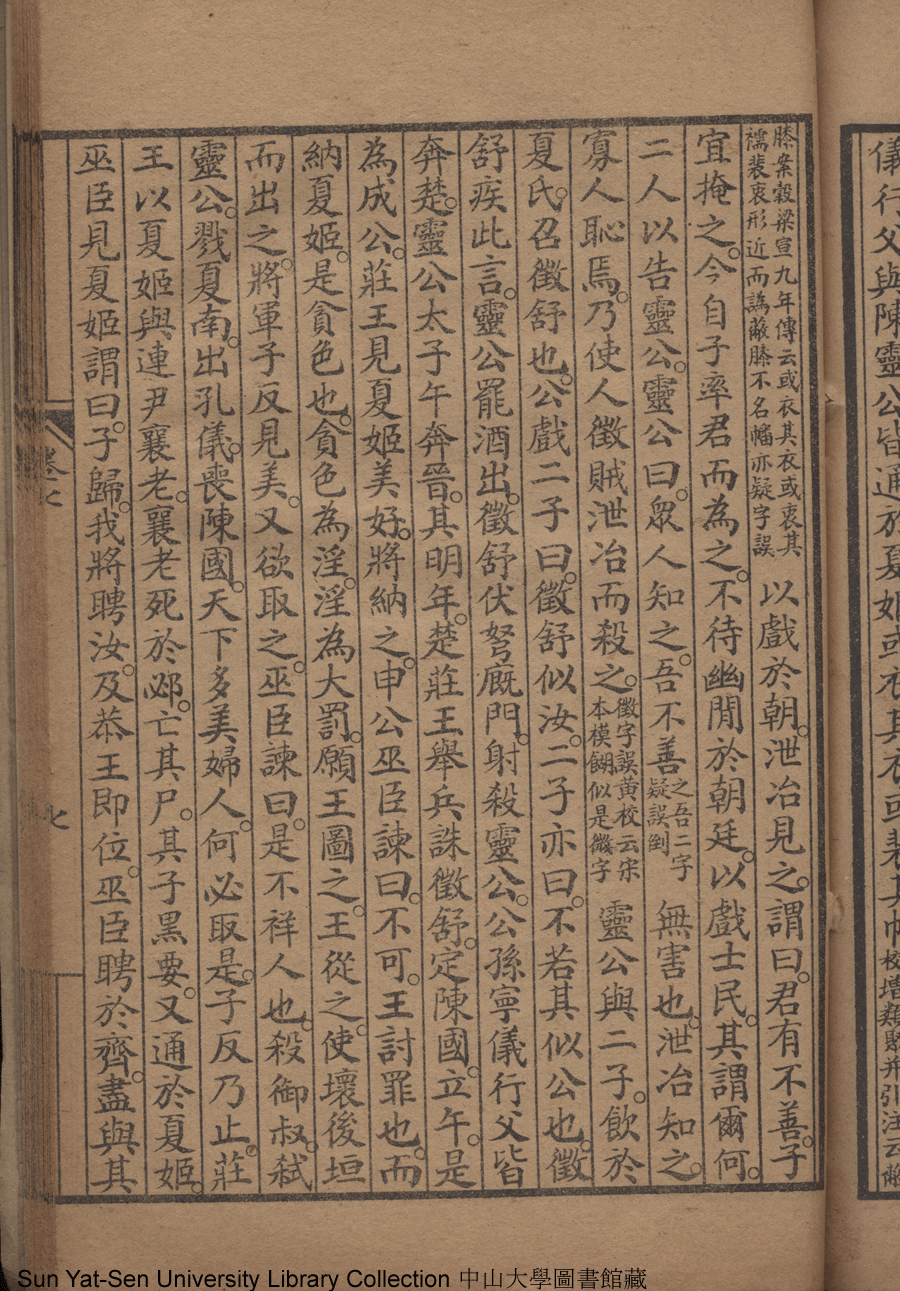 儀行父與陳靈公皆通於夏姬或衣其衣或裴其
校增類賦并引注云蔽
膝案穀梁宣九年傳云或衣其衣或衷其
襦裴衷形近而譌蔽膝不名幡亦疑字誤
以戲於朝。泄冶見之。謂曰。君有不善。子
宜掩之。今自子率君而為之。不待幽閒於朝廷。以戲士民。其謂爾何。
二人以告靈公。靈公曰。眾人知之。吾不善
之吾二字
疑誤倒
無害也。泄冶知之。
寡人恥焉。乃使人徵賊泄冶而殺之。
徵字誤黃校云宋
本模餬似是微字
靈公與二子。飲於
夏氏。召徵舒也。公戲二子曰。徵舒似汝。二子亦曰。不若其似公也。徵
舒疾此言。靈公罷酒出。徵舒伏弩廐門。射殺靈公。公孫寧儀行父皆
奔楚。靈公太子午奔晉。其明年。楚莊王舉兵誅徵舒。定陳國。立午。是
為成公。莊王見夏姬美好。將納之。申公巫臣諫曰。不可。王討罪也。而
納夏姬。是貪色也。貪色為淫。淫為大罰。願王圖之。王從之。使壞後垣
而出之。將軍子反見美。又欲取之。巫臣諫曰。是不祥人也。殺御叔。弑
靈公。戮夏南。出孔儀。喪陳國。天下多美婦人。何必取是。子反乃止。莊
王以夏姬與連尹襄老。襄老死於邲。亡其尸。其子黑要。又通於夏姬。
巫臣見夏姬。謂曰。子歸。我將聘汝。及恭王即位。巫臣聘於齊。盡與其
卷七
七
Sun Yat-Sen University Library Collection 中山大學圖書館藏